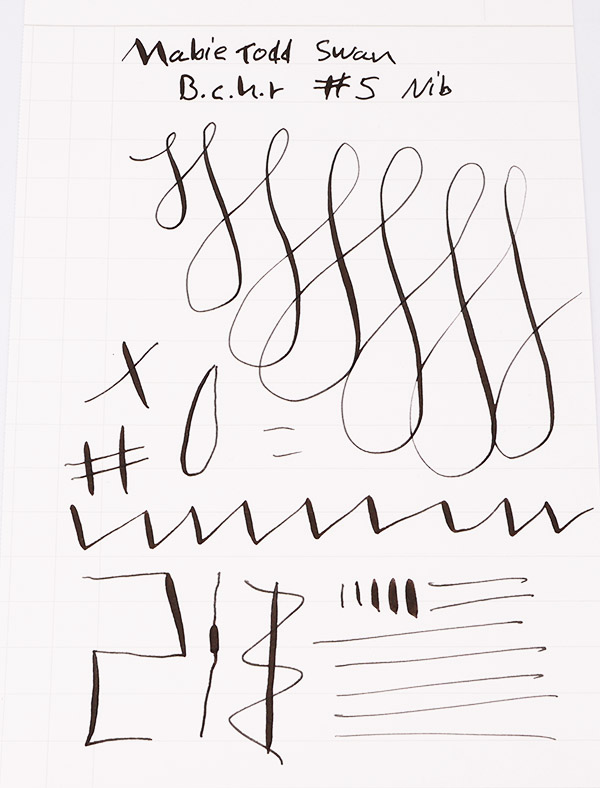 Mabie Todd Swan
B.c.h.r #5 Nib
X
#